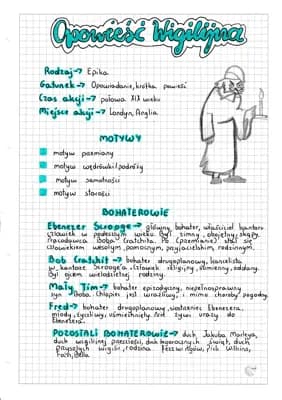 Opowieść Wigilijna
Rodzaj → Epika
Gatunek → Opowiadanie, krótka powieść
Czas akcji → połowa XIX wieku
Miejsce akcji → Londyn, Anglia
MOTYWY
motyw przemiany
motyw wędrówki/podróży
motyw samotności
motyw starości
BOHATEROWIE
Ebenezer Scrooge → główny bohater, właściciel kantoru
człowiek w podeszłym wieku. Był zimny, obojętny, skąpy.
Pracodawca Boba Cratchita. Po (przemianie) stał się
człowiekiem wesołym, pomocnym, przyjacielskim, rodzinnym.
Bob Cratchit → bohater drugoplanowy, kancelista
w kantorze Scrooge'a. Człowiek religijny, sumienny, oddany.
Był ojcem wielodzietnej rodziny.
Mały Tim → bohater epizodyczny, niepełnosprawny
syn Boba. Chłopiec jest wrażliwy, i mimo choroby pogodny.
Fred → bohater drugoplanowy, siostrzeniec Ebenezera,
młody, życzliwy, uśmiechnięty. Fred żywi urazy do
Ebenezera.
POZOSTALI BOHATEROWIE → duch Jakuba Marleya,
duch wigilijnej przeszłości, duch tegorocznych świąt, duch
przyszłych wigilii, rodzina Fezziwigów, Dick Wilkins,
Fan, Bella